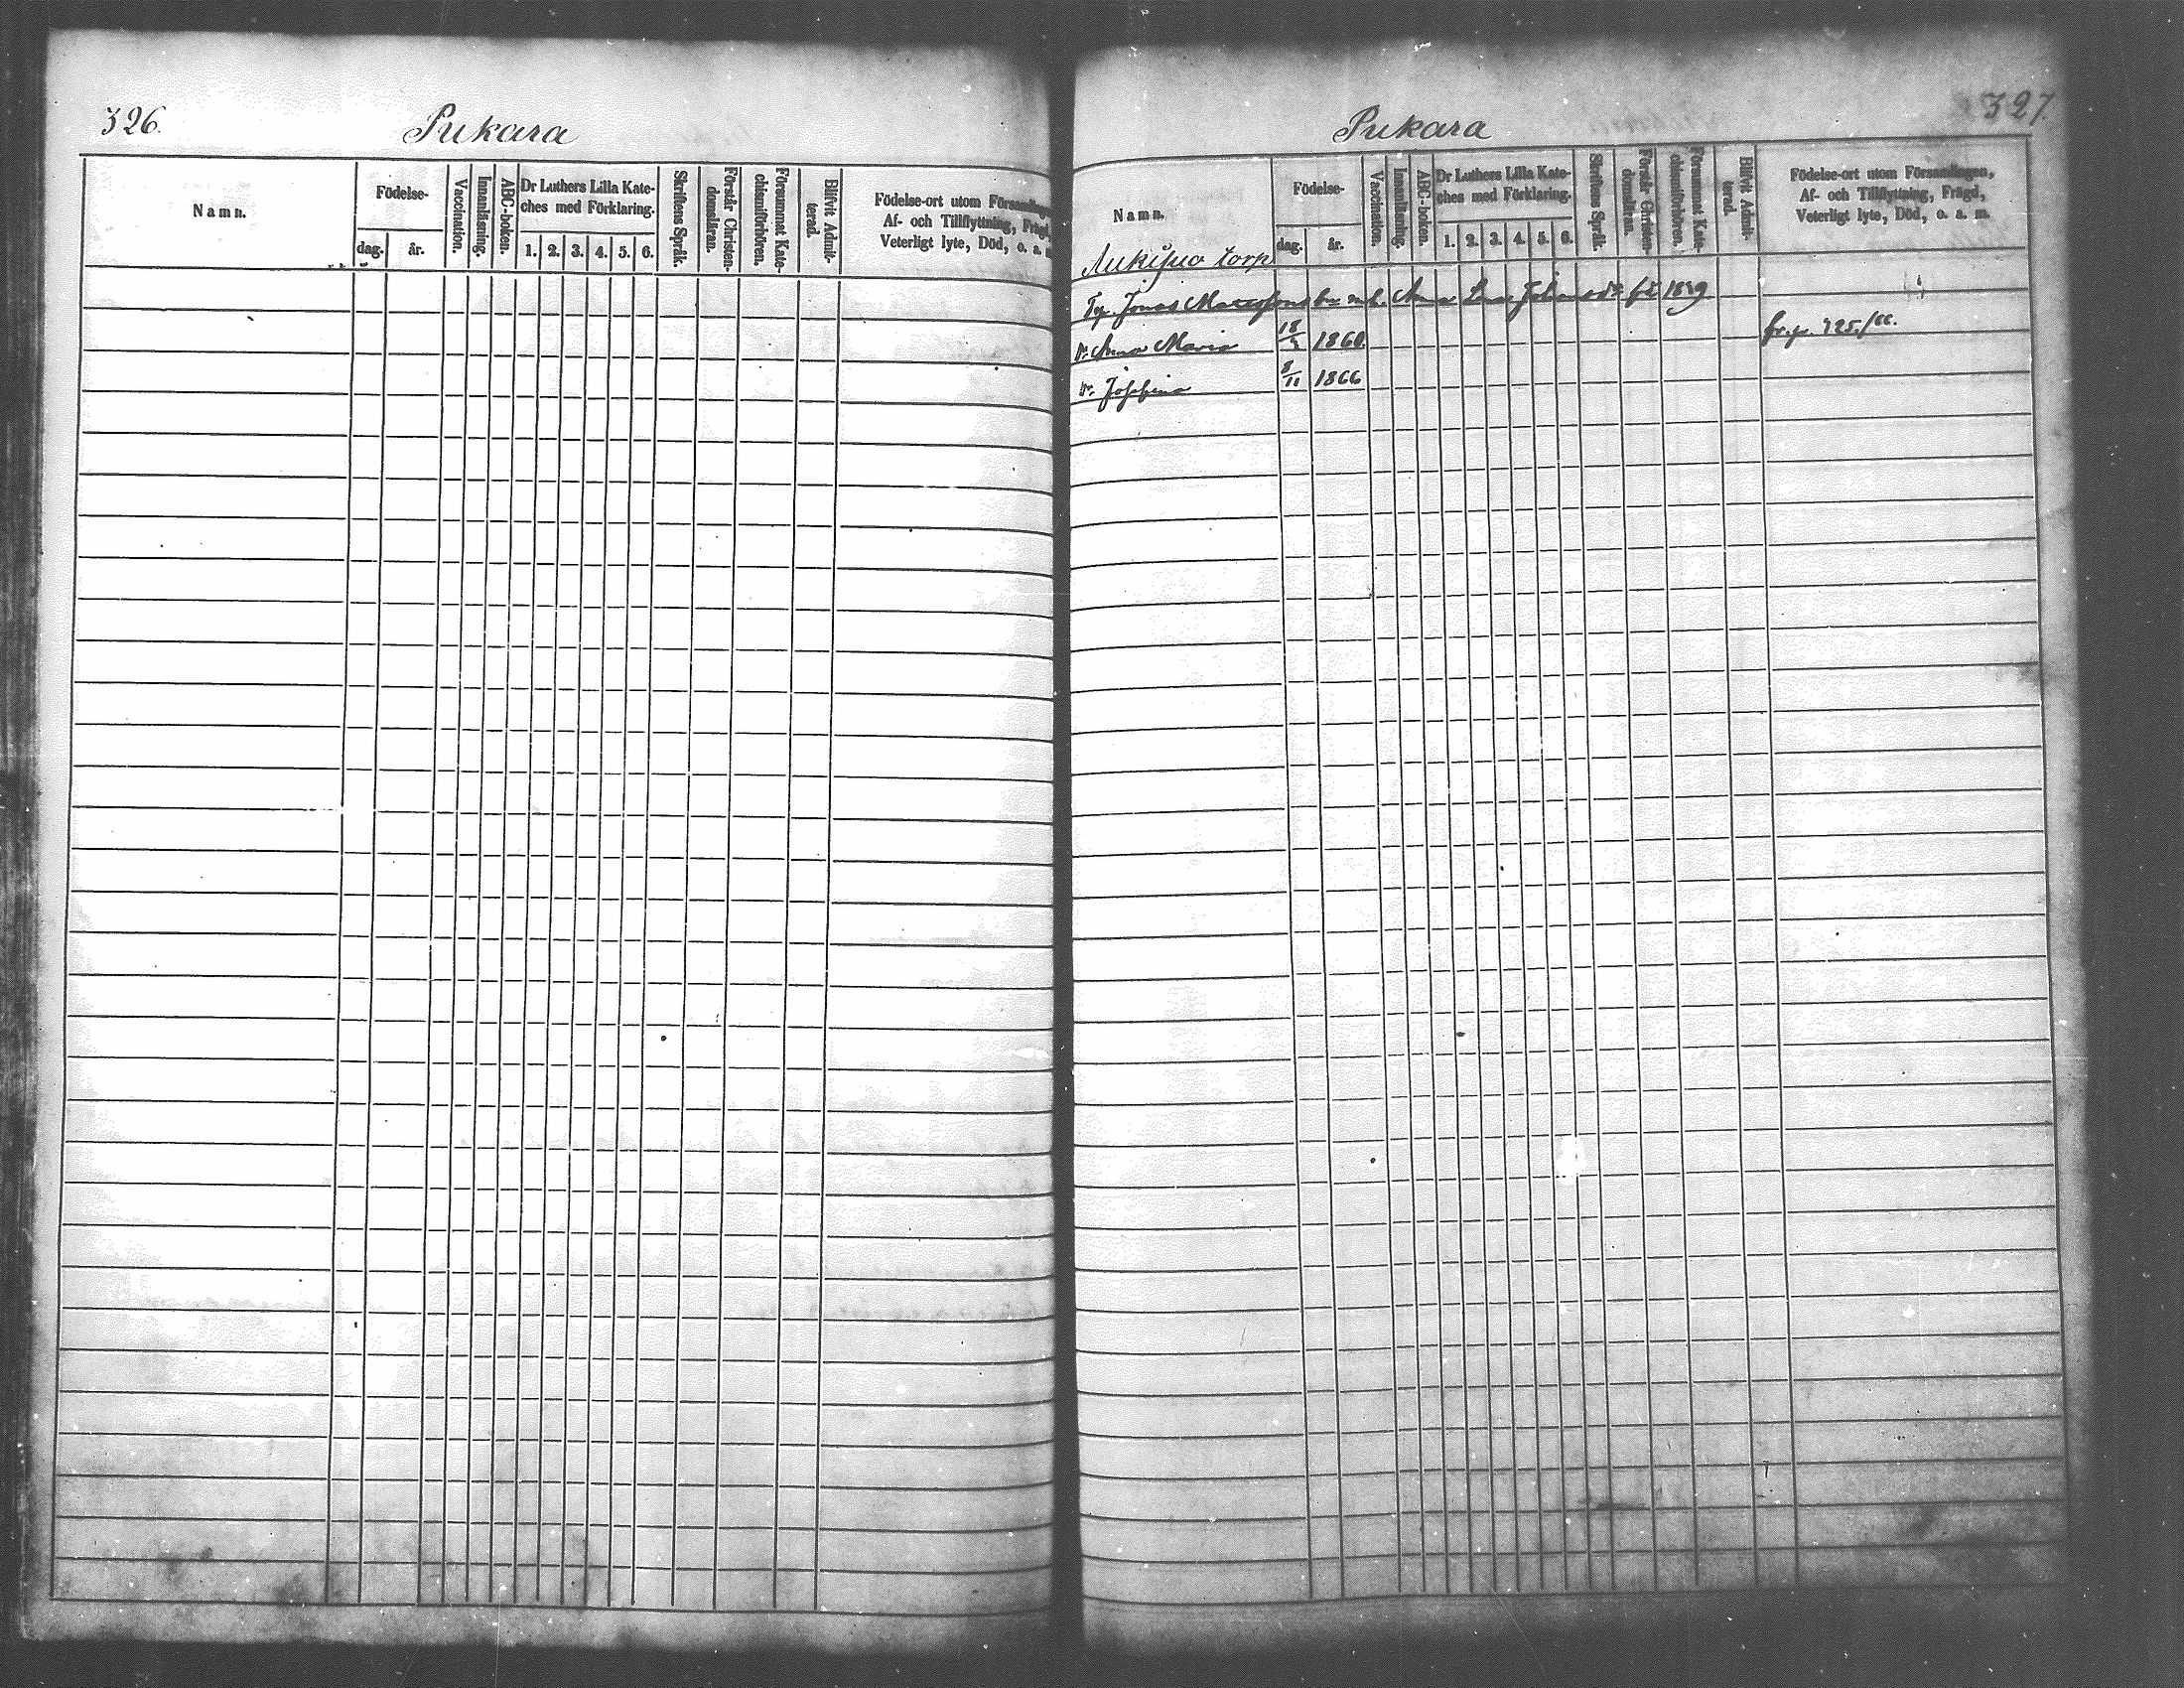 326.
Pukara
Namn.
Födelse-
dag.
år.
Vaccination.
Innanläsning.
ABC-boken.
Dr Luthers Lilla Kate-
ches med Förklaring.
1. 2. 3. 4. 5. 6.
Skriftens Språk.
Förstår Christen-
domsläran.
Försummat Kate-
chismiförhören.
Blifvit Admit-
terad.
Födelse-ort utom Församlingen,
Af- och Tillflyttning, Frägd,
Veterligt lyte, Död, o. a. m.
327.
Pukara
Namn.
Födelse-
dag.
år.
Vaccination.
Innanläsning.
ABC-boken.
Dr Luthers Lilla Kate-
ches med Förklaring.
1. 2. 3. 4. 5. 6.
Skriftens Språk.
Förstår Christen-
domsläran.
Försummat Kate-
chismiförhören.
Blifvit Admit-
terad.
Födelse-ort utom Församlingen,
Af- och Tillflyttning, Frägd,
Veterligt lyte, Död, o. a. m.
torp
Tp. Jonas Mattssons Anna Lena
Dr. Anna Maria 1860. fr. p. 325./66.
Dr. Josefina 8/11 1866